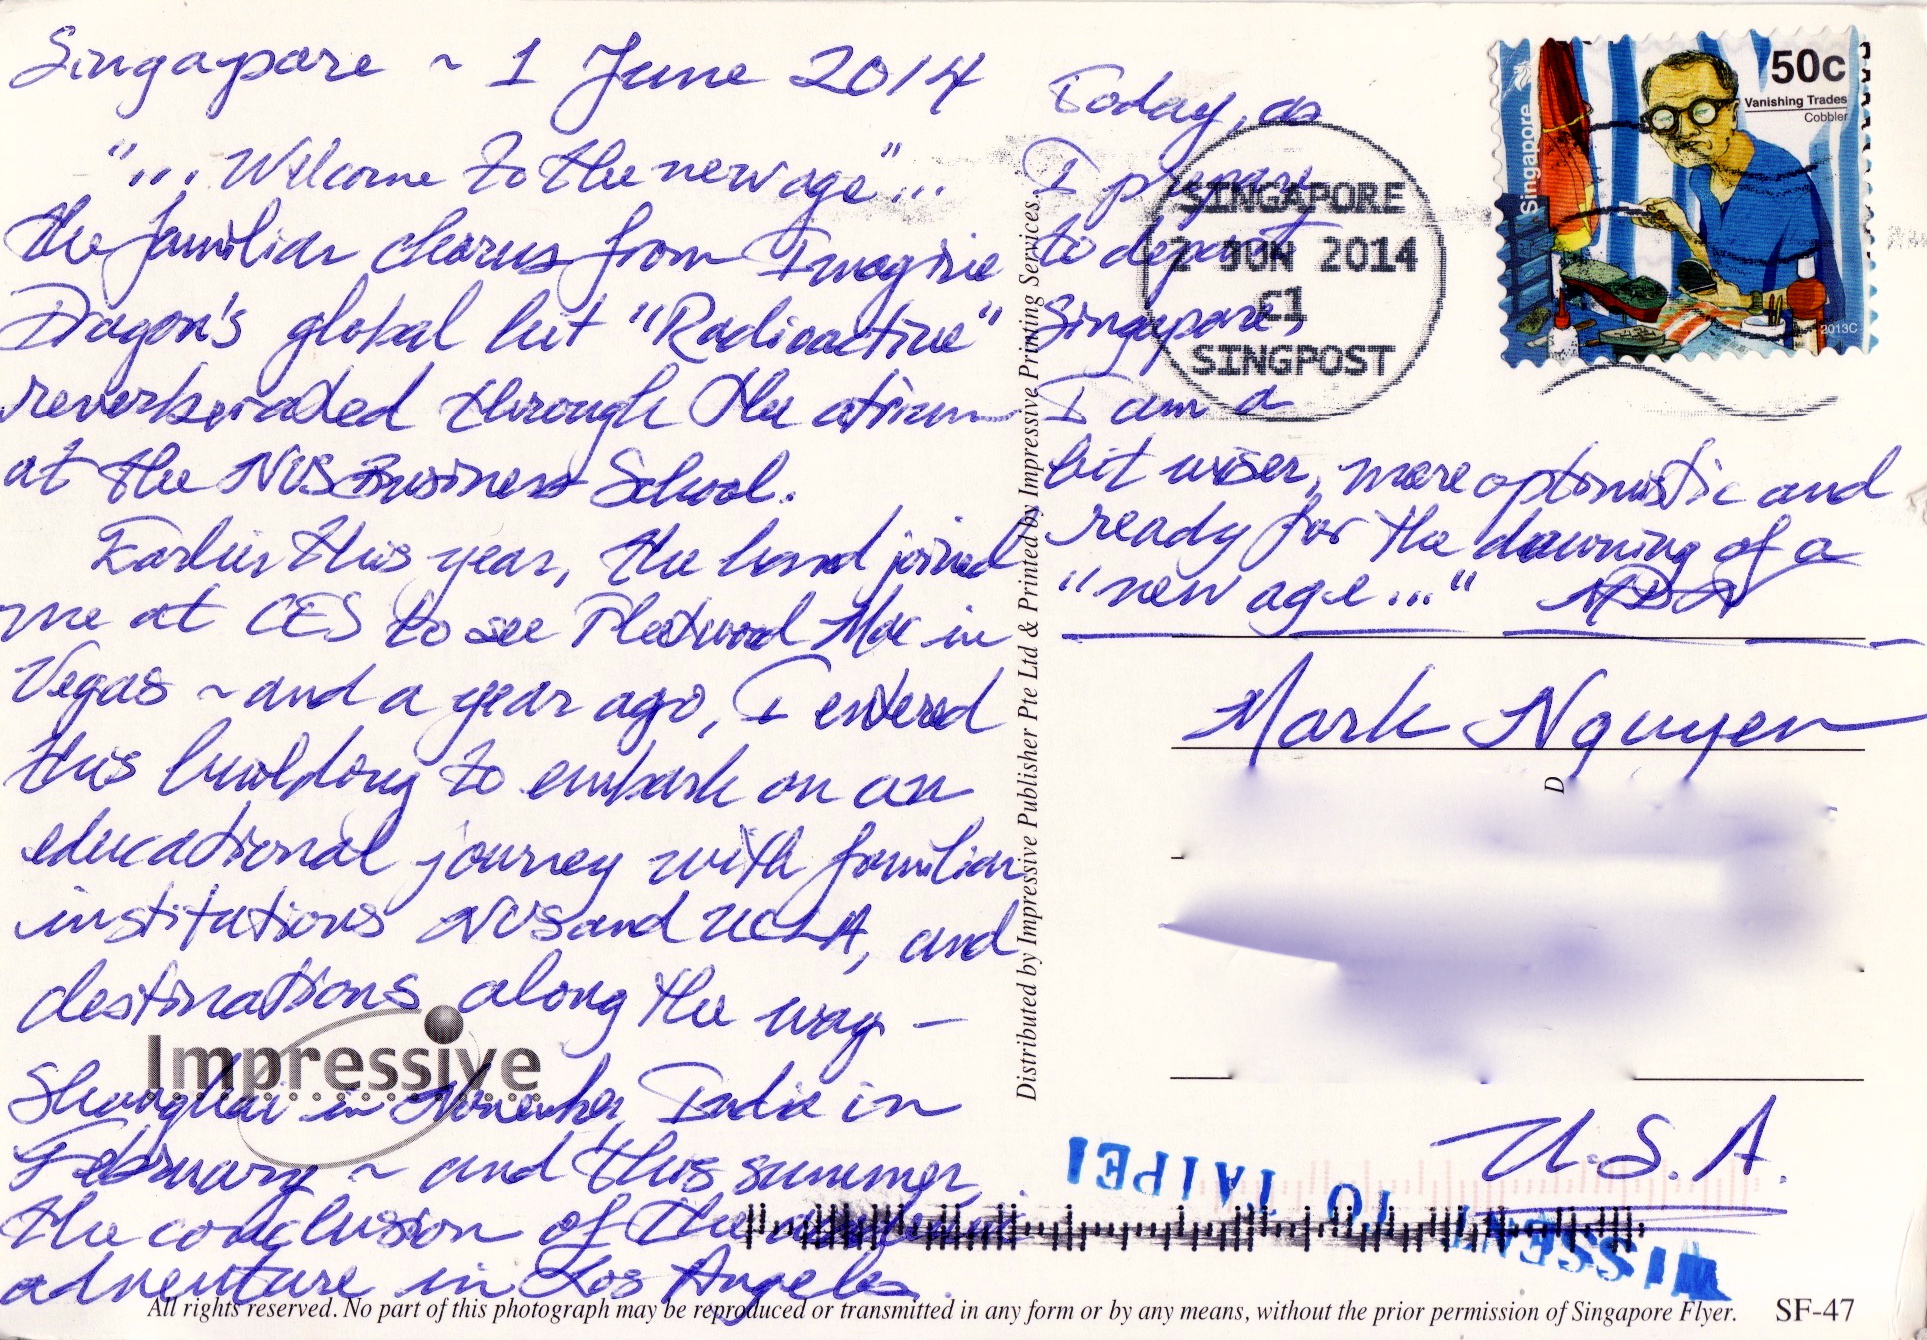 Singapore ~ 1 June 2014
"... Welcome to the new age"...
the familiar chorus from Imagine
Dragon's global hit "Radioactive"
reverberated through the atrium
at the NUS Business School.
Earlier this year, the band joined
me at CES to see Fleetwood Mac in
Vegas ~ and a year ago, I entered
this building to embark on an
educational journey with familiar
institutions NUS and UCLA, and
destinations along the way -
Shanghai in November, India in
February ~ and this summer,
the conclusion of the academic
adventure in Los Angeles.
Impressive
Today, as
I prepare
to depart
Singapore,
I am a
bit wiser, more optimistic and
ready for the dawning of a
"new age..."
Mark Nguyen
D
U.S.A.
Distributed by Impressive Publisher Pte Ltd & Printed by Impressive Printing Services.
SINGAPORE
2 JUN 2014
C1
SINGPOST
50c
Vanishing Trades
Cobbler
Singapore
2013C
MISSENT TO TAIPEI
All rights reserved. No part of this photograph may be reproduced or transmitted in any form or by any means, without the prior permission of Singapore Flyer.
SF-47